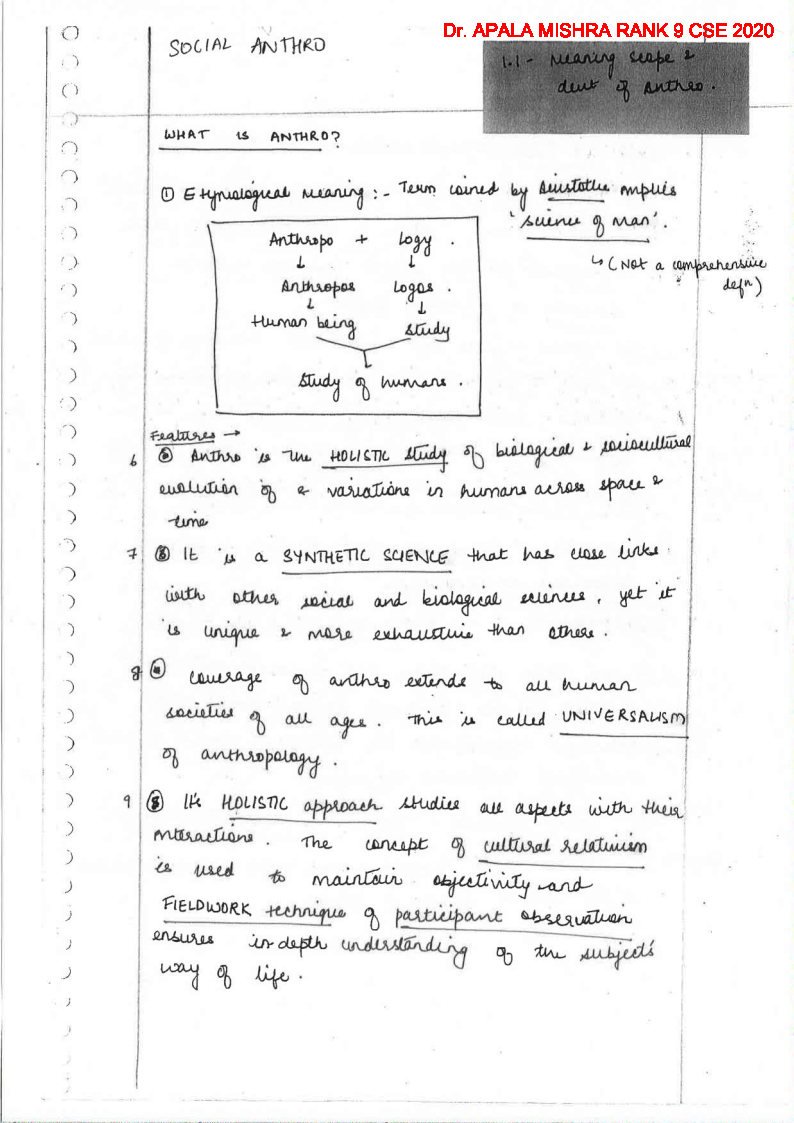 Dr. APALA MISHRA RANK 9 CSE 2020
SOCIAL ANTHRO
1.1 - Meaning scope &
devt of Anthro.
WHAT IS ANTHRO?
① Etymological Meaning :- Term coined by Aristotle implies
'science of man'.
↳ (Not a comprehensive
defn)
Anthropo + Logy.
↓ ↓
Anthropos Logos.
↓ ↓
Human being study
↓
study of humans.
Features →
6 Anthro is the HOLISTIC study of biological & sociocultural
evolution of & variations in humans across space &
time
7 It is a SYNTHETIC SCIENCE that has close links
with other social and biological sciences, yet it
is unique & more exhaustive than others.
8 Coverage of anthro extends to all human
societies of all ages. This is called UNIVERSALISM
of anthropology.
9 It's HOLISTIC approach studies all aspects with their
interactions. The concept of cultural relativism
is used to maintain objectivity and
FIELDWORK technique of participant observation
ensures in-depth understanding of the subject's
way of life.